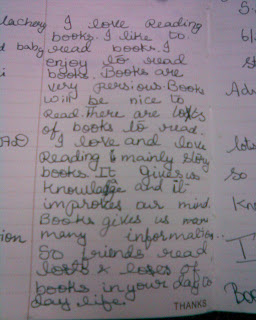 lachery
I love Reading
books. I like to
d baby
read books. I
enjoy to read
books. Books are
very persious. Books
will be nice to
Read. There are lots
of books to read.
AD
I love and love
Reading & mainly story
books It gives us
knowladge and it
improves our mind.
Books gives us
many information.
ion
So friends read
lots & lotes of
books in your day to
day life.
THANKS
So
Kno
Boo